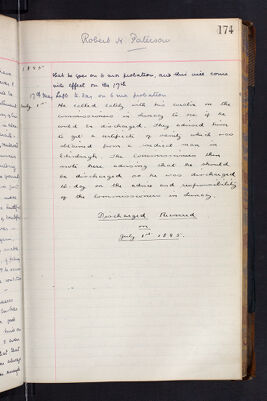 174
Robert H Paterson
1885
that he goes on 6 mos probation, and this will come
into effect on the 17th
17th May Left to day on 6 mos probation
July 1st He called lately with his wife on the
Commissioners in Lunacy to see if he
could be discharged. They advised him
to get a certificate of sanity which was
obtained from a medical man in
Edinburgh. The Commissioners then
wrote here advising that he should
be discharged so he was discharged
to-day on the advice and responsibility
of the Commissioners in Lunacy.
Discharged Recovered
on
July 1st 1885.